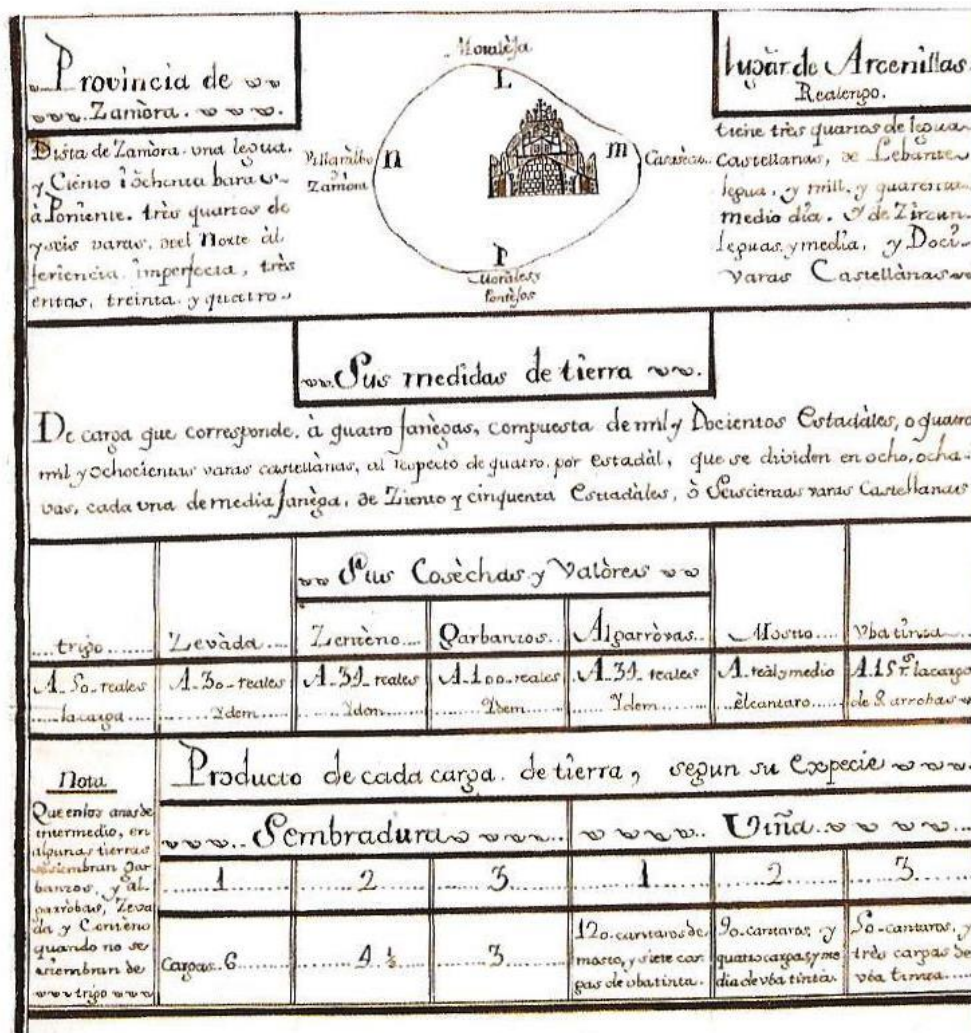 Provincia de
Zamòra.
Dista de Zamòra una legua.
y Ciento i òchenta baras
à Poniente. três quartos de
y seis varas, del Norte àl
feriencia imperfecta, três
entas, treinta y quatro
Moralèja
L
Villaràlbo
y
Zamòra
n
m
Casaseca
P
Morales y
Pontejos
lugàr de Arcenillas
Realengo.
tiene três quartos de legua
Castellanas, de Lebante
legua, y mill, y quarenta
medio dia. Y de Zircun
leguas y media, y Doci
varas Castellànas
Sus medidas de tierra
De carga que corresponde. à quatro fanègas, compuesta de mil y Docientos Estadàles, o quatro
mil y ochocientas varas castellànas, al respecto de quatro. por estadàl, que se dividen en ocho, ocha
vas, cada una de media fanèga, de Ziento y cinquenta Estadàles, ò Seiscientas varas Castellanas
Sus Cosèchas y Valòres
trigo
Zevàda
Zentèno
Garbanzos
Algarròvas
Mosto
Vba tinta
A 50 reales
la carga
A 30 reales
Ydem
A 34 reales
Ydem
A 100 reales
Ydem
A 34 reales
Ydem
A reàl y medio
èl cantaro
A 15 rs la carga
de 8 arrobas
Nota
Que en los anos de
intermedio, en
algunas tierras
se siembran gar
banzos, y al
garrobas, Zeva
da y Centeno
quando no se
siembran de
trigo
Producto de cada carga. de tierra, segun su Expecie
Sembradura
Viña
1
2
3
1
2
3
Cargas 6
4 ½
3
120 cantaros de
mosto, y siete car
gas de vba tinta.
90 cantaros, y
quatro cargas y me
dia de vba tinta.
50 cantaros, y
três cargas de
vba tinta